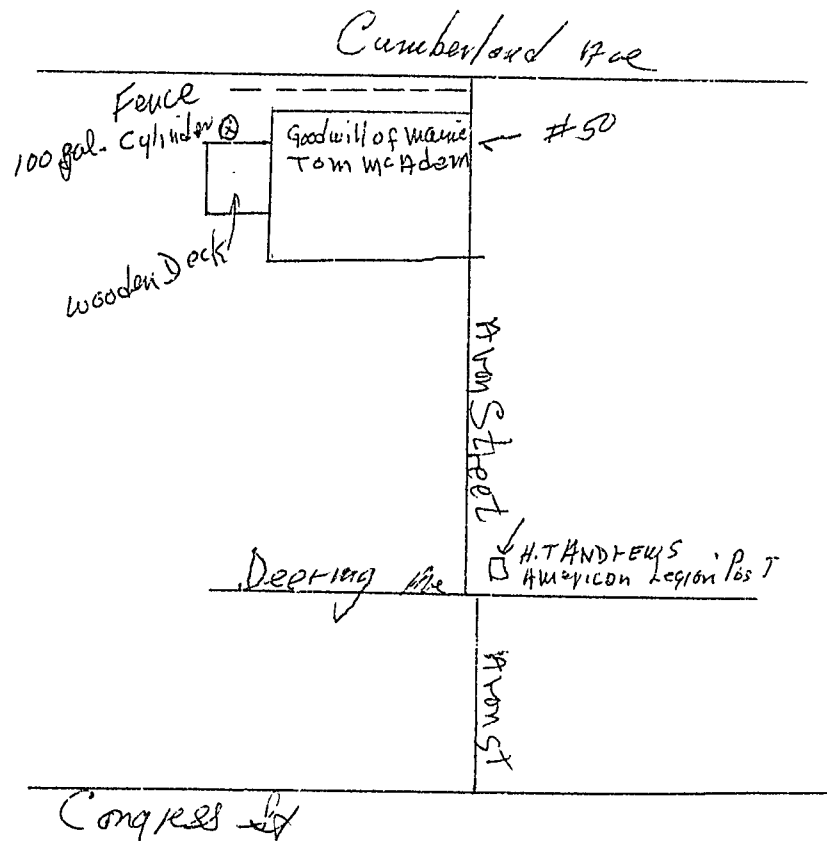 Cumberland Ave
Fence
100 gal. Cylinder
Goodwill of Maine
Tom McAdam
#50
wooden Deck
Avon Street
H.T ANDREWS
American Legion Post
Deering Ave
Avon St
Congress St